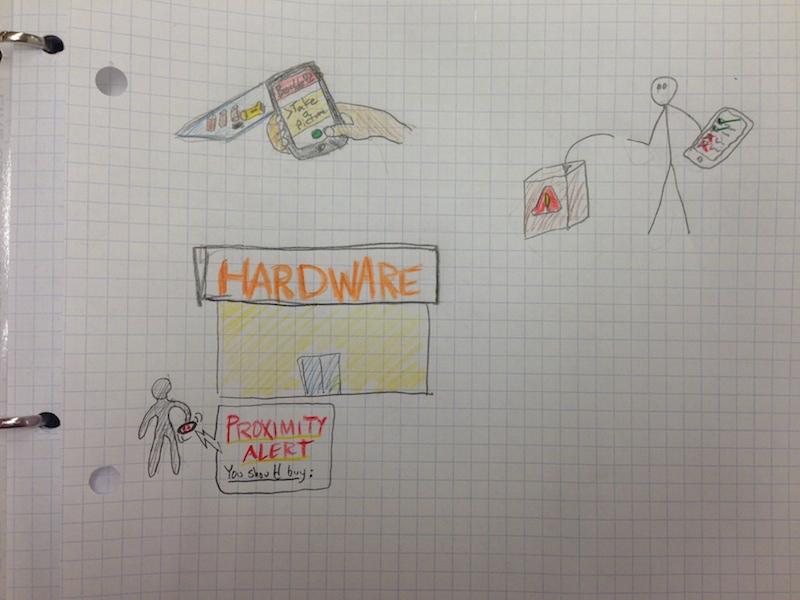 >Take
a
Picture
HARDWARE
PROXIMITY
ALERT
You should buy: